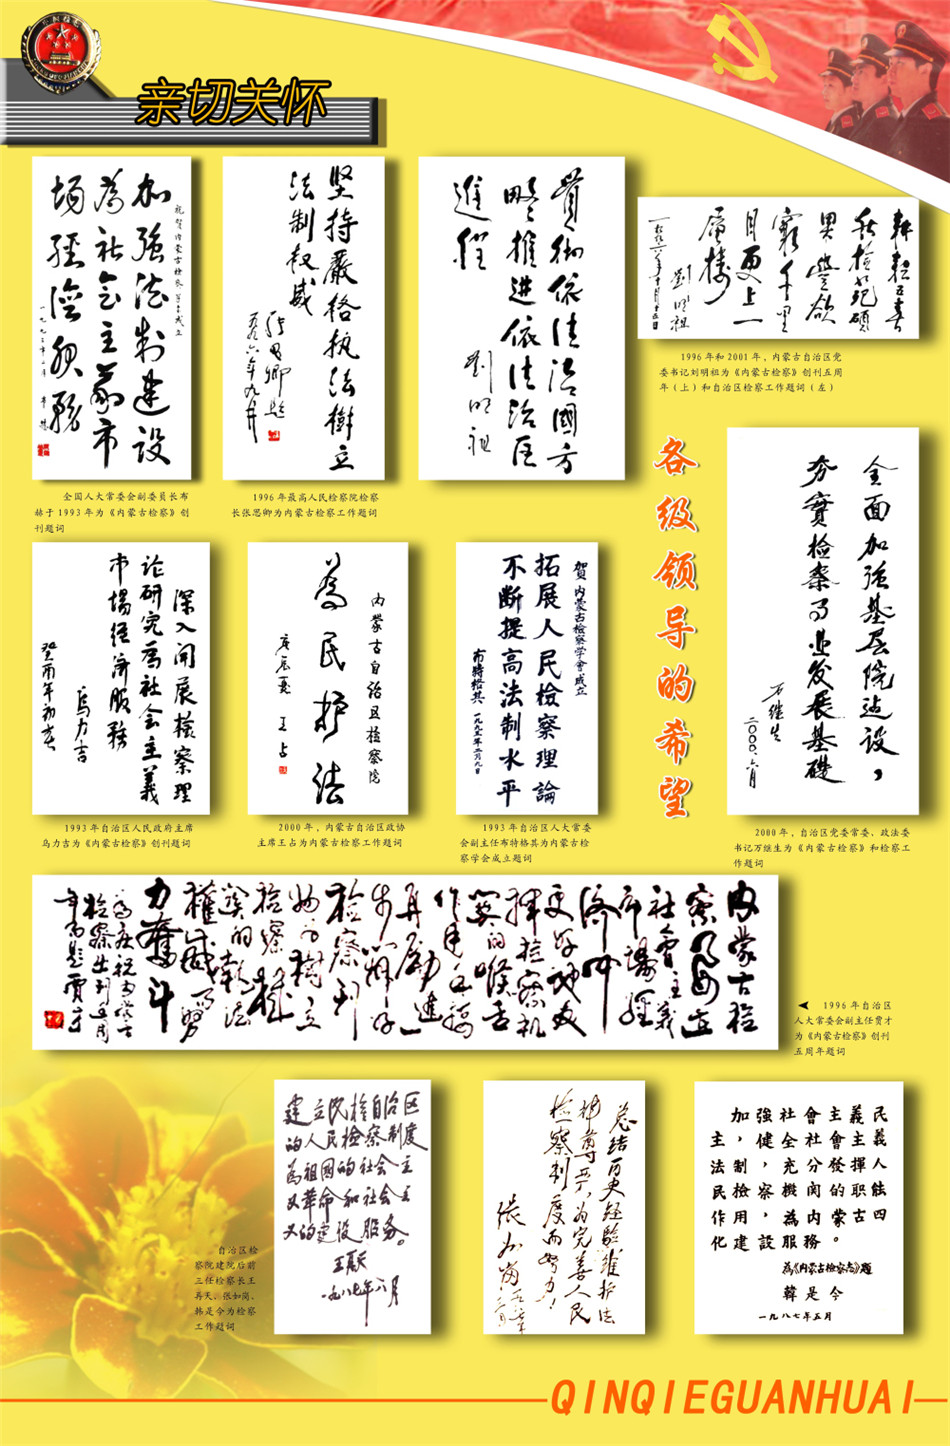 亲切关怀
祝贺内蒙古检察学会成立
加强法制建设
为社会主义市
场经济服务
一九九三年
布赫
全国人大常委会副委员长布
赫于1993年为《内蒙古检察》创
刊题词
坚持严格执法树立
法制权威
张思卿题
一九九六年九月
1996年最高人民检察院检察
长张思卿为内蒙古检察工作题词
贯彻依法治国方
略推进依法治区
进程
刘明祖
耕耘五春
秋检苑硕
果丰欲
穷千里
目更上一
层楼
刘明祖
1996年和2001年，内蒙古自治区党
委书记刘明祖为《内蒙古检察》创刊五周
年（上）和自治区检察工作题词（左）
各级领导的希望
全面加强基层院建设，
夯實检察事业发展基礎
石继生
二〇〇〇.六月
2000年，自治区党委常委、政法委
书记万继生为《内蒙古检察》和检察工
作题词
深入开展检察理
论研究为社会主義
市場经济服務
乌力吉
癸酉年初春
1993年自治区人民政府主席
乌力吉为《内蒙古检察》创刊题词
内蒙古自治区检察院
为民护法
庚辰夏 王占
2000年，内蒙古自治区政协
主席王占为内蒙古检察工作题词
賀内蒙古检察学會成立
拓展人民检察理論
不断提高法制水平
布特格其 一九九三年二月九日
1993年自治区人大常委
会副主任布特格其为内蒙古检
察学会成立题词
内蒙古检
察
社會主義
市場經
济
更好地发
挥检察机
關的喉舌
作用
再励進
步
检察刊
树立
检察
的執法
權威
力奮斗
1996年自治区
人大常委会副主任贾才
为《内蒙古检察》创刊
五周年题词
建立民族自治区
的人民检察制度
为祖国的社会主
义革命和社会主
义的建设服务。
王再天
一九八七年六月
自治区检
察院建院后前
三任检察长王
再天、张如岗、
韩是今为检察
工作题词
总结历史经驗维护法
律尊严为完善人民
检察制度而努力！
张如岗
民義人能四
義主揮职古
主會發的蒙。
會社分関内務
社全充機為服
強健，察，設
加，制檢用建
主法民作化
為《内蒙古检察志》題
韓是今
一九八七年五月
QINQIEGUANHUAI